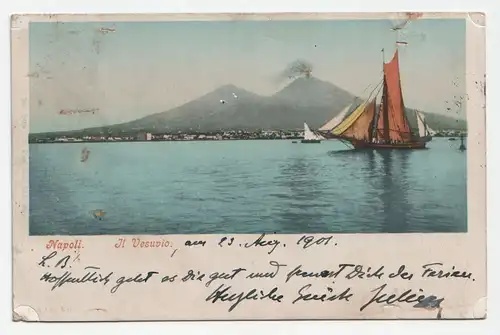 Napoli. Il Vesuvio. am 23. Aug. 1901.
L. B.!
Hoffentlich geht es Dir gut und freust Dich der Ferien.
Herzliche Grüße